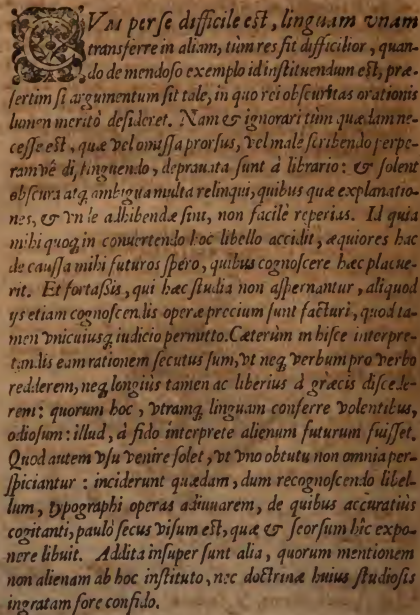 QVVM per se difficile est, linguam vnam
transferre in aliam, tum res fit difficilior, quan-
do de mendoso exemplo id instituendum est, præ-
sertim si argumentum sit tale, in quo rei obscuritas orationis
lumen meritò desideret. Nam & ignorari tùm quædam ne-
cesse est, quæ vel omissa prorsus, vel malè scribendo perpe-
ramvè distinguendo, deprauata sunt à librario: & solent
obscura atq, ambigua multa relinqui, quibus quæ explanatio-
nes, & vnde adhibendæ sint, non facilè reperias. Id quia
mihi quoq, in conuertendo hoc libello accidit, æquiores hac
de caussa mihi futuros spero, quibus cognoscere hæc placue-
rit. Et fortaßis, qui hæc studia non aspernantur, aliquod
ijs etiam cognoscendis operæprecium sunt facturi, quod ta-
men vnicuiusq, iudicio permitto. Cæterùm in hisce interpre-
tandis eam rationem secutus sum, vt neq, verbum pro verbo
redderem, neq, longiùs tamen ac liberius à græcis discede-
rem: quorum hoc, vtramq, linguam conferre volentibus,
odiosum: illud, à fido interprete alienum futurum fuisset.
Quod autem vsu venire solet, vt vno obtutu non omnia per-
spiciantur: inciderunt quædam, dum recognoscendo libel-
lum, typographi operas adiuuarem, de quibus accuratiùs
cogitanti, paulò secus visum est, quæ & seorsum hîc expo-
nere libuit. Addita insuper sunt alia, quorum mentionem
non alienam ab hoc instituto, nec doctrinæ huius studiosis
ingratam fore confido.